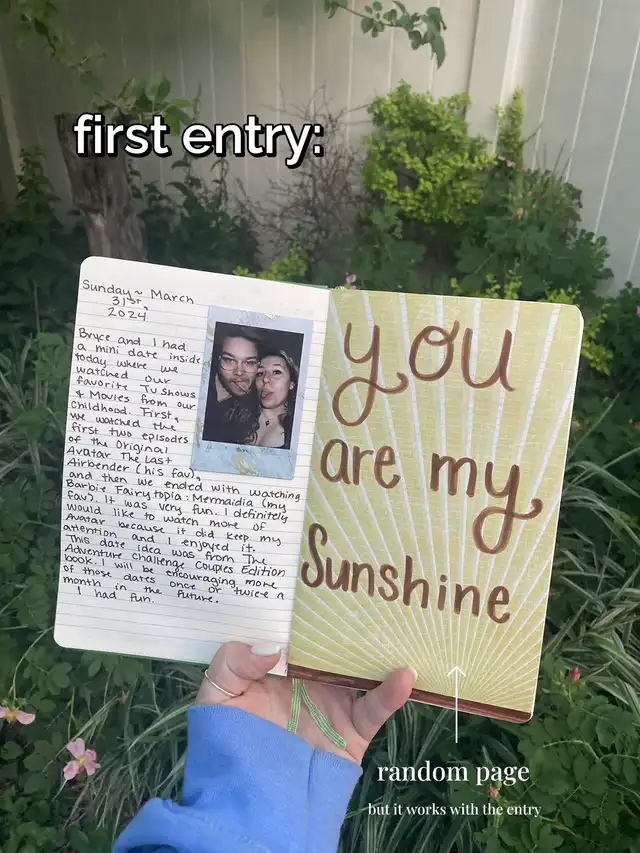 first entry:
Sunday ~ March
31st
2024
Bryce and I had
a mini date inside
today where we
watched our
favorite TV shows
& Movies from our
Childhood. First,
we watched the
first two episodes
of the Original
Avatar The Last
Airbender (his fav),
and then we ended with watching
Barbie Fairytopia: Mermaidia (my
fav). It was very fun. I definitely
would like to watch more of
Avatar because it did keep my
attention and I enjoyed it.
This date idea was from The
Adventure Challenge Couples Edition
book. I will be encouraging more
of those dates once or twice a
month in the future.
I had fun.
you
are my
Sunshine
random page
but it works with the entry